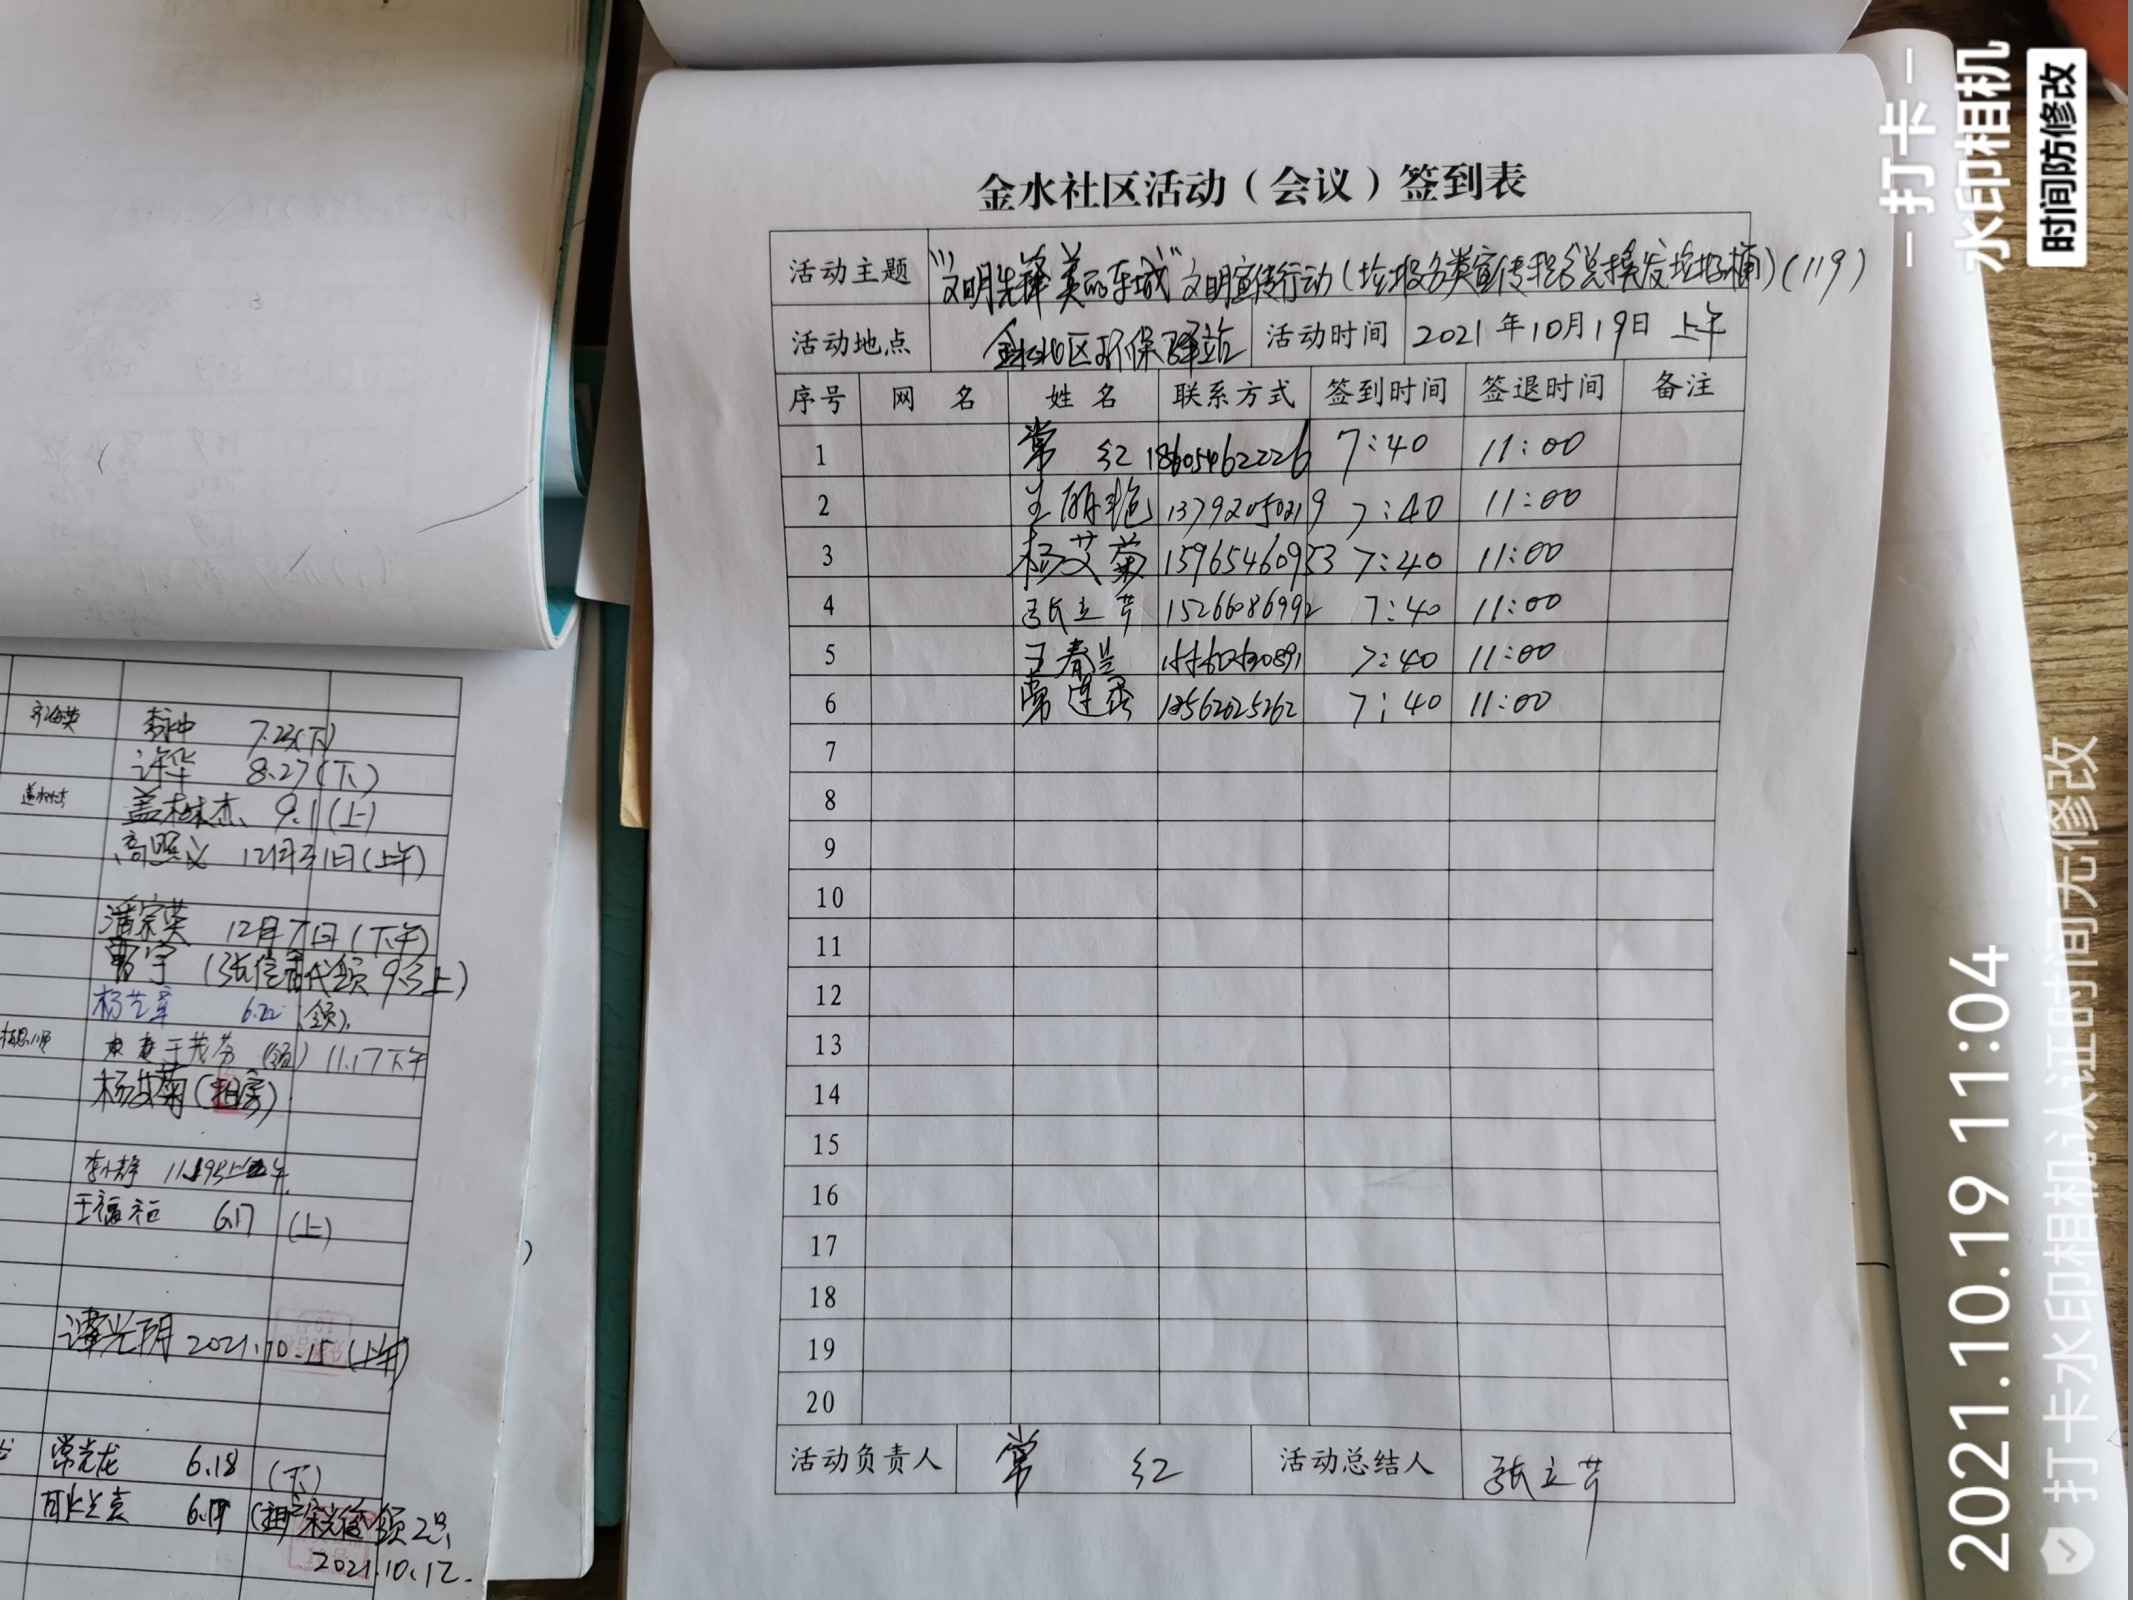 金水社区活动（会议）签到表
活动主题 "文明先锋 美丽东城"文明宣传行动(垃圾分类宣传 积分兑换发垃圾桶)(119)
活动地点 金水社区环保驿站 活动时间 2021年10月19日 上午
序号 网 名 姓 名 联系方式 签到时间 签退时间 备注
1 常 红 18605462226 7:40 11:00
2 王丽艳 13792050219 7:40 11:00
3 杨艾菊 15965460953 7:40 11:00
4 张立芹 15266086992 7:40 11:00
5 王春兰 7:40 11:00
6 常连香 13562025262 7:40 11:00
7
8
9
10
11
12
13
14
15
16
17
18
19
20
活动负责人 常 红 活动总结人 张立芹
7.23(下)
许华 8.27(下)
盖树杰 9.1(上)
高照义 12月31日(上午)
潘宗英 12月7日(下午)
曹宇 (张信 代领 9.3上)
6.22 (领).
于茂芬 (领) 11.17下午
杨艾菊(租房)
李小静
王福 6.17 (上)
谭光明 2021.10.15(上午)
常光龙 6.18 (下)
领2只
2021.10.12.
打卡
水印相机
时间防修改
2021.10.19 11:04
打卡水印相机认证时间无修改